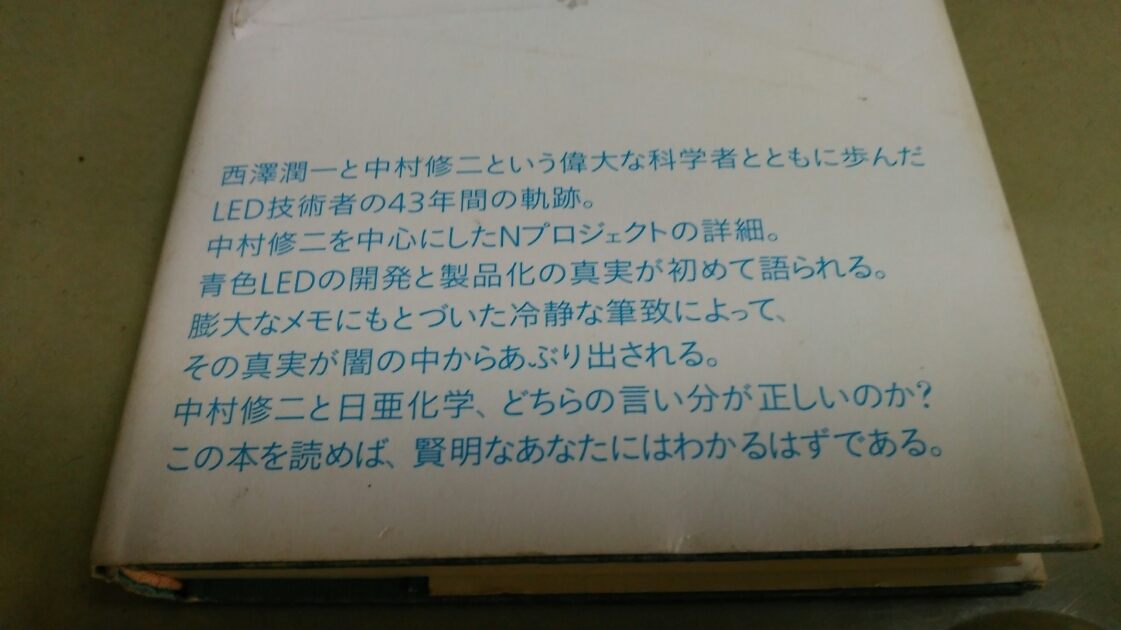 西澤潤一と中村修二という偉大な科学者とともに歩んだ
LED技術者の43年間の軌跡。
中村修二を中心にしたNプロジェクトの詳細。
青色LEDの開発と製品化の真実が初めて語られる。
膨大なメモにもとづいた冷静な筆致によって、
その真実が闇の中からあぶり出される。
中村修二と日亜化学、どちらの言い分が正しいのか?
この本を読めば、賢明なあなたにはわかるはずである。